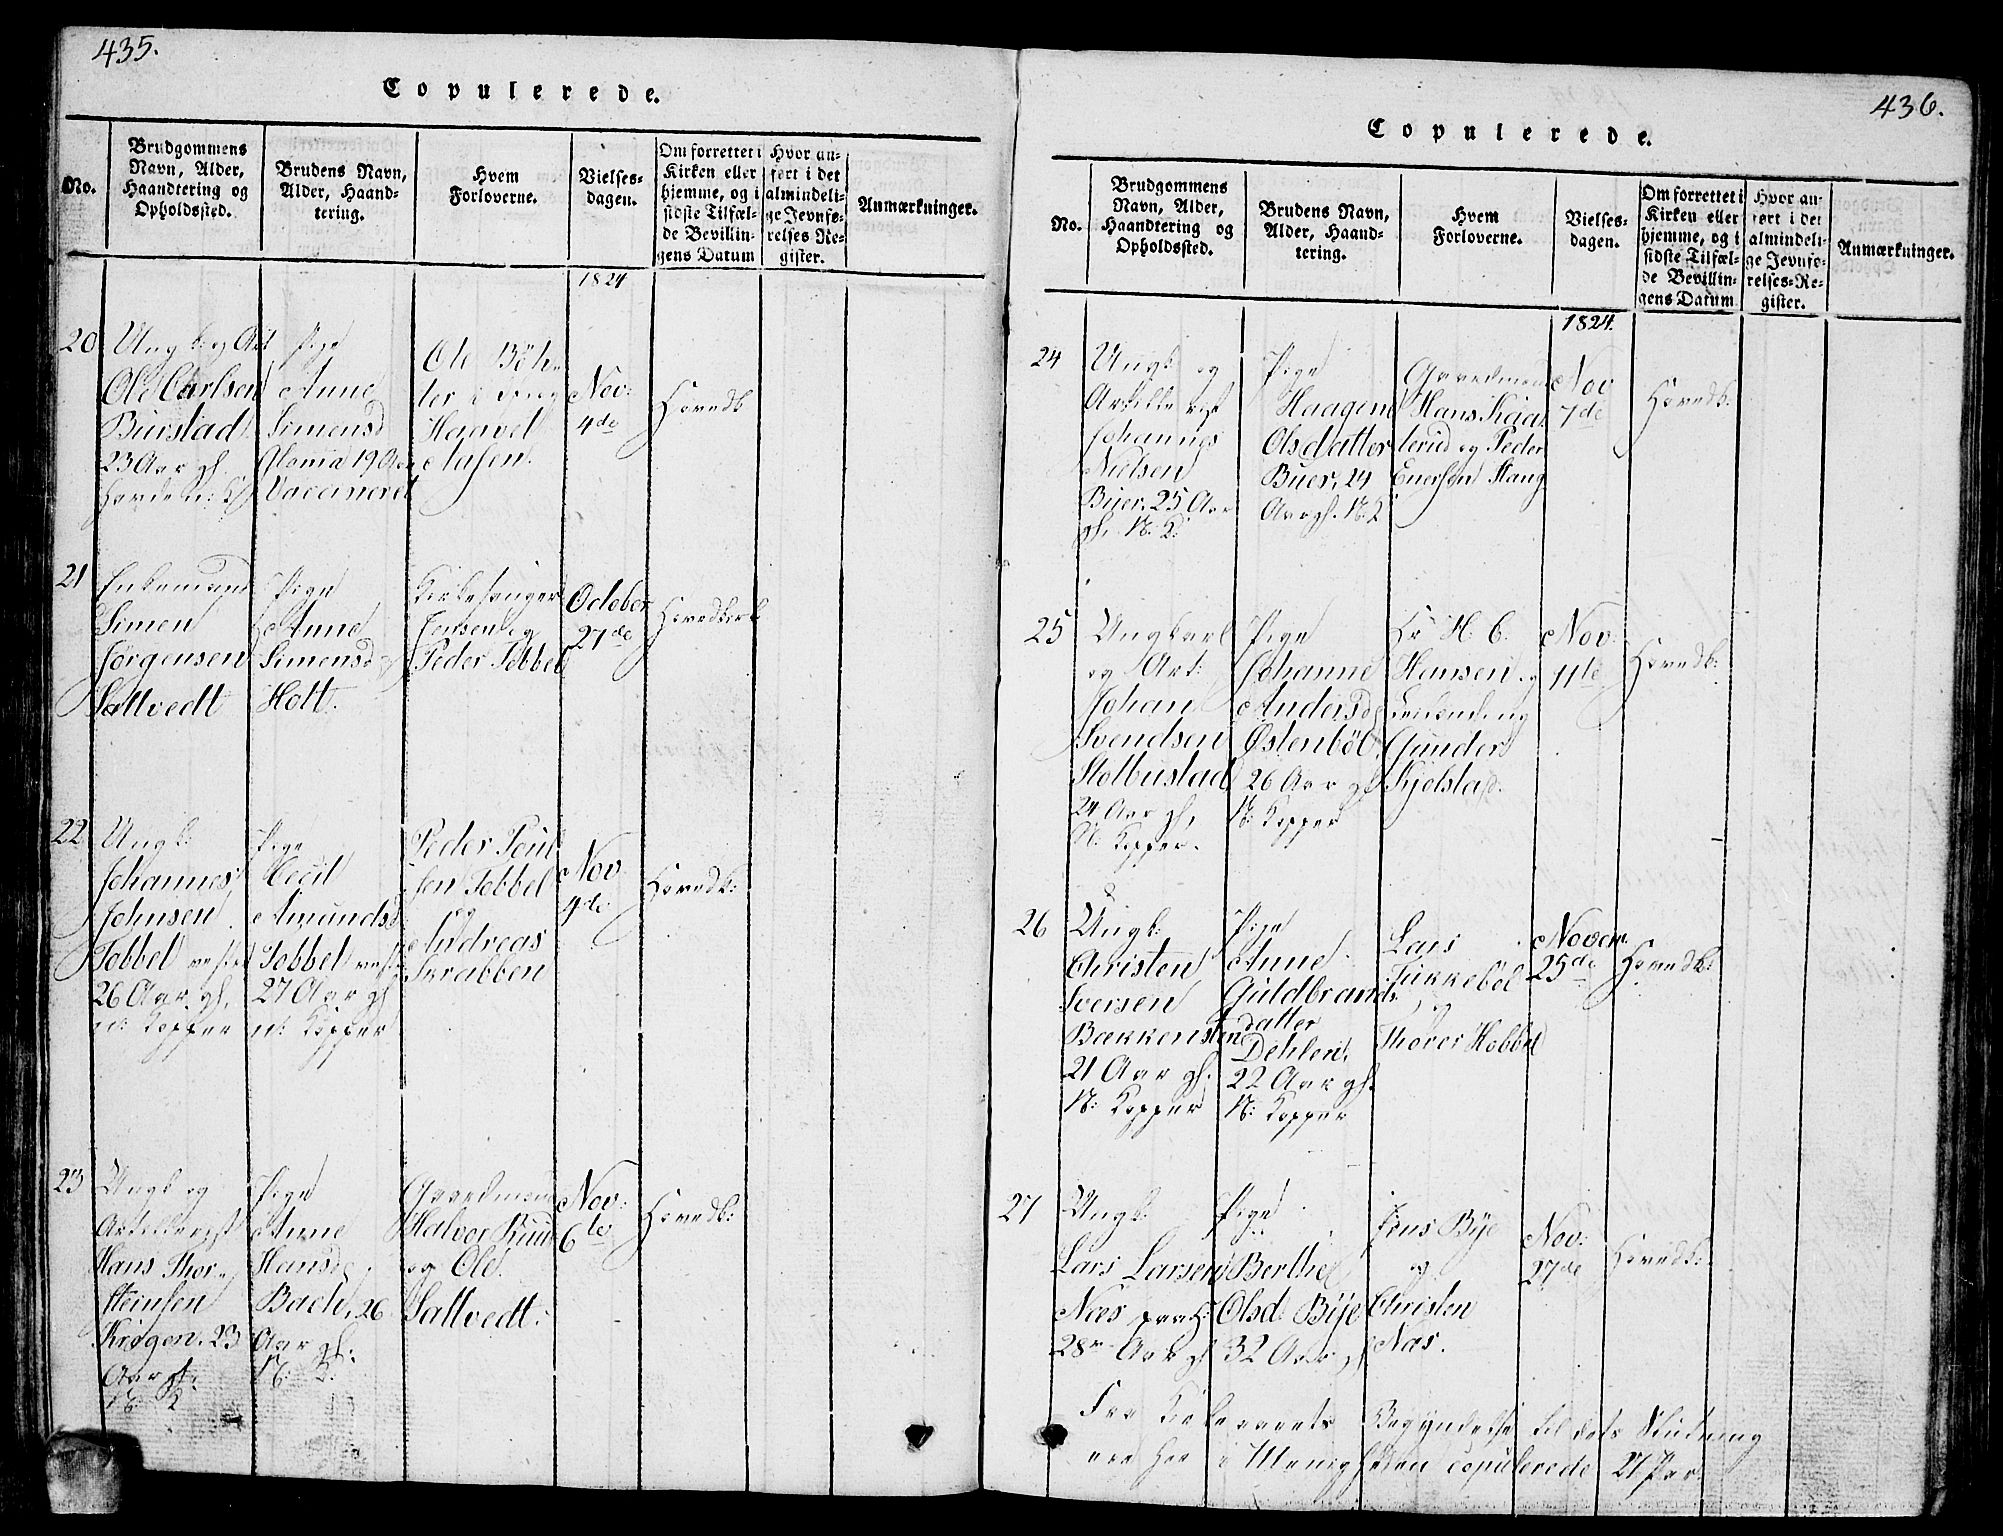 435.
Copulerede.
No.
Brudgommens
Navn, Alder,
Haandtering og
Opholdssted.
Brudens Navn,
Alder, Haand-
tering.
Hvem
Forloverne.
Vielses-
dagen.
Om forrettet i
Kirken eller
hjemme, og i
sidste Tilfæl-
de Bevillin-
gens Datum
Hvor an-
ført i det
almindeli-
ge Jevnfø-
relses Re-
gister.
Anmærkninger.
1824
20
Ungk og Art
Ole Carlsen
Burstad
23 Aar gl.
Pige
Anne
Simensd
19 Aar
Vaccineret
Ole Böh-
ler i
Haavel
Nov:
4de
Hovedk
21
Enkemand
Simen
Jørgensen
Sattvedt
Pige
Anne
Simensd
Holt.
Kirkesanger
Jensen og
Peder Tobbel
October
27de
Hovedkirk
22
Ungk:
Johannes
Johnsen
Tobbel
26 Aar gl.
n: Kopper
Pige
Cecil
Amundsd
Tobbel
27 Aar gl
n: Kopper
Peder Poul
sen Tobbel
og
Andreas
Skrabben
Nov
4de
Hovedk:
23
Ungk og
Artillerist
Hans Thor-
steinsen
Krogen. 23
Aar gl.
N: K
Pige
Anne
Hansd
Bach, 26
Aar gl:
N: K.
Gaardmænd
Halvor Ruud
og Ole
Sattvedt.
Nov:
6te
Hovedk:
436.
Copulerede.
No.
Brudgommens
Navn, Alder,
Haandtering og
Opholdssted.
Brudens Navn,
Alder, Haand-
tering.
Hvem
Forloverne.
Vielses-
dagen.
Om forrettet i
Kirken eller
hjemme, og i
sidste Tilfæl-
de Bevillin-
gens Datum
Hvor an-
ført i det
almindeli-
ge Jevnfø-
relses-Re-
gister.
Anmærkninger.
1824.
24
Ungk: og
Artillerist
Johannes
Nielsen
Buer, 25 Aar
gl. N: K:
Pige
Haagen
Olsdatter
Buer, 24
Aar gl. N: K
Gaardmænd
Hans Kaa-
lerud og Peder
Enersen Haug
Nov
7de
Hovedk:
25
Ungkarl
og Art:
Johan
Svendsen
Stolbustad
24 Aar gl,
N: Kopper.
Pige
Johanne
Andersd
Østenböl
26 Aar gl
N: Kopper
Hr H. C.
Hansen og
Gunder
Kjølstad.
Nov:
11te
Hovedk:
26
Ungk:
Christen
Iversen
Bækkensten
21 Aar gl.
N: Kopper
Pige
Anne
Guldbrands
datter
Dehlen,
22 Aar gl.
N: Kopper
Lars
Tukkeböl
og
Thorer Hobbel
Novem.
25de
Hovedk:
27
Ungk:
Lars Larsen
Næs
28 Aar gl
Pige
Berthe
Olsd: Bye
32 Aar gl
Jens Bye
og
Christen
Næs.
Nov:
27de
Hovedk:
Fra Kirkeaarets Begyndelse til dets Slutning
ere her i Menigheden copulerede 27 Par.